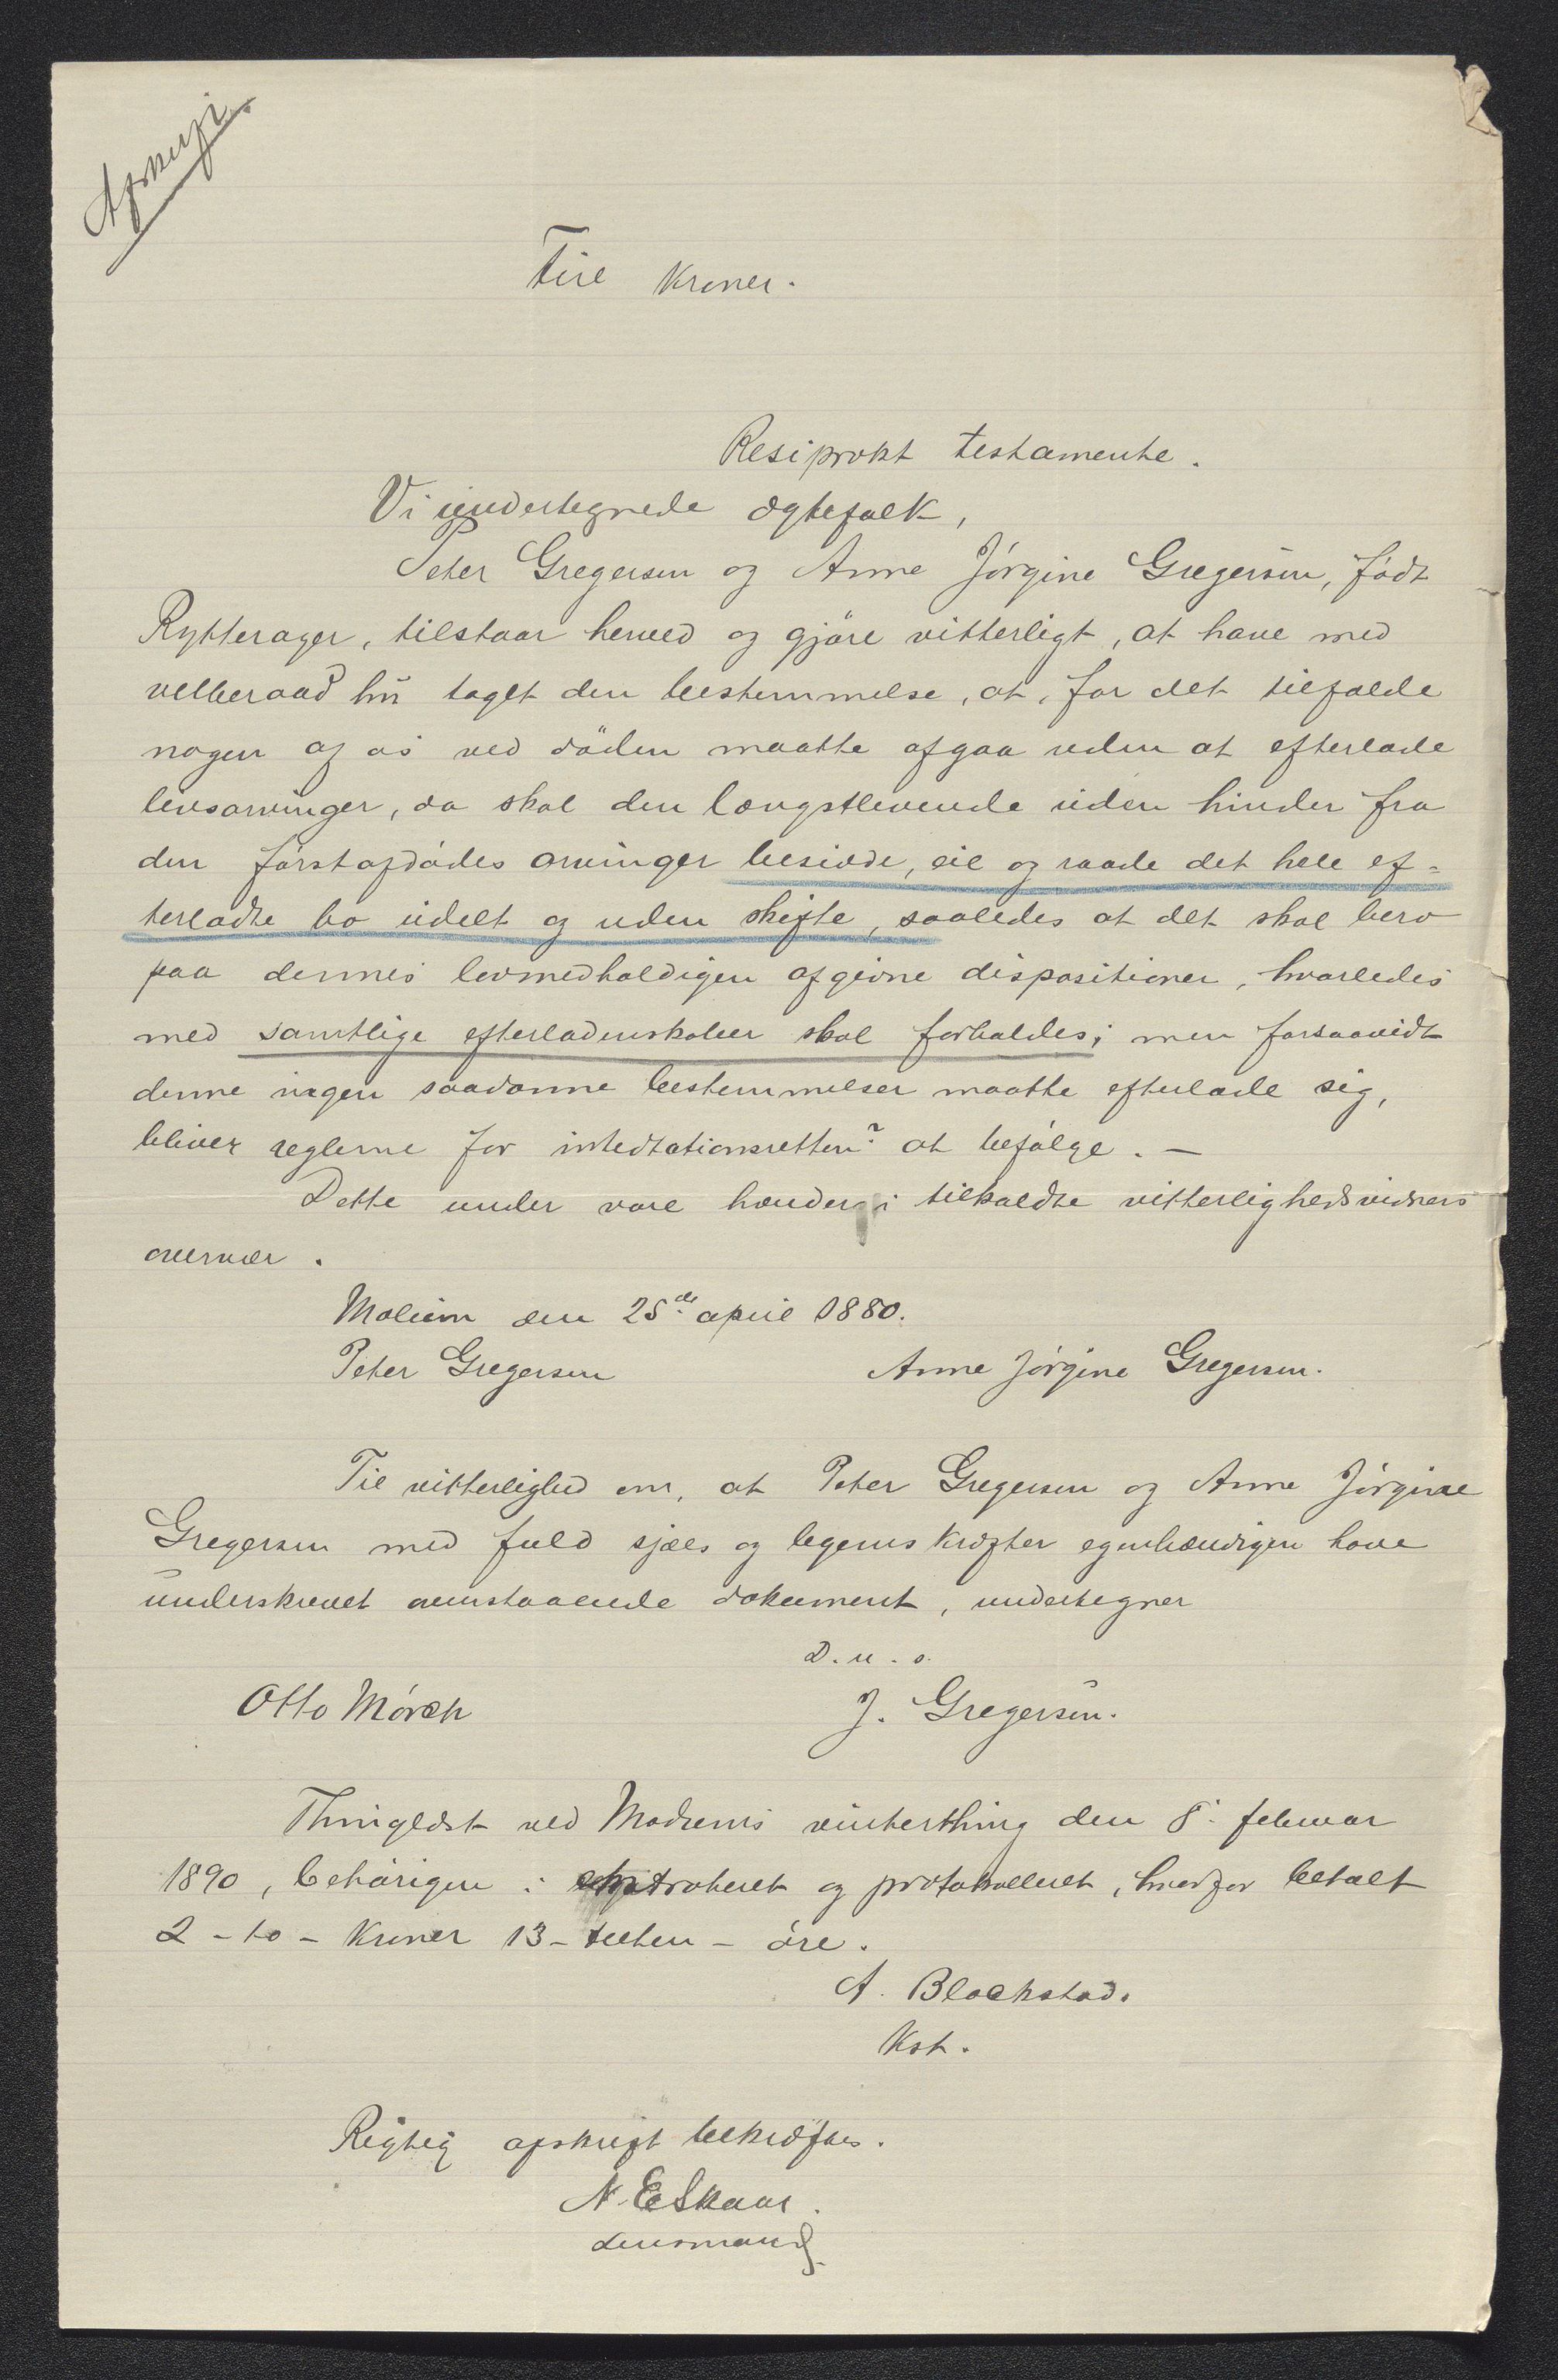 Afskrift.
Fire kroner.
Resiprokt testamente.
Vi undertegnede ægtefolk,
Peter Gregersen og Anne Jörgine Gregersen, födt
Rytterager, tilstaar herved og gjöre vitterligt, at have med
velberaad hu taget den bestemmelse, at, for det tilfælde
nogen af os ved döden maatte afgaa uden at efterlade
livsarvinger, da skal den længstlevende uden hinder fra
den förstafdödes arvinger besidde, eie og raade det hele ef=
terladte bo udelt og uden skifte, saaledes at det skal bero
paa dennes lovmedholdigen afgivne dispositioner, hvorledes
med samtlige efterladenskaber skal forholdes; men forsaavidt
denne ingen saadanne bestemmelser maatte efterlade sig,
bliver reglerne for intedtationsretten? at befölge. —
Dette under vore hænder i tilkaldte vitterlighedsvidners
overvær.
Moliem den 25de april 1880.
Peter Gregersen Anne Jörgine Gregersen.
Til vitterlighed om, at Peter Gregersen og Anne Jörgine
Gregersen med fuld sjæls og legems kræfter egenhændigen have
underskrevet ovenstaaende dokument, undertegner
D. u. s.
Otto Mörch J. Gregersen.
Thinglæst ved Modums vinterthing den 8. februar
1890, behörigen : extraheret og protokolleret, hvorfor betalt
2 - to - kroner 13 - tretten - öre.
A. Blackstad.
Kst.
Rigtig afskrift bekræftes.
N. E Skaar.
lensmand.